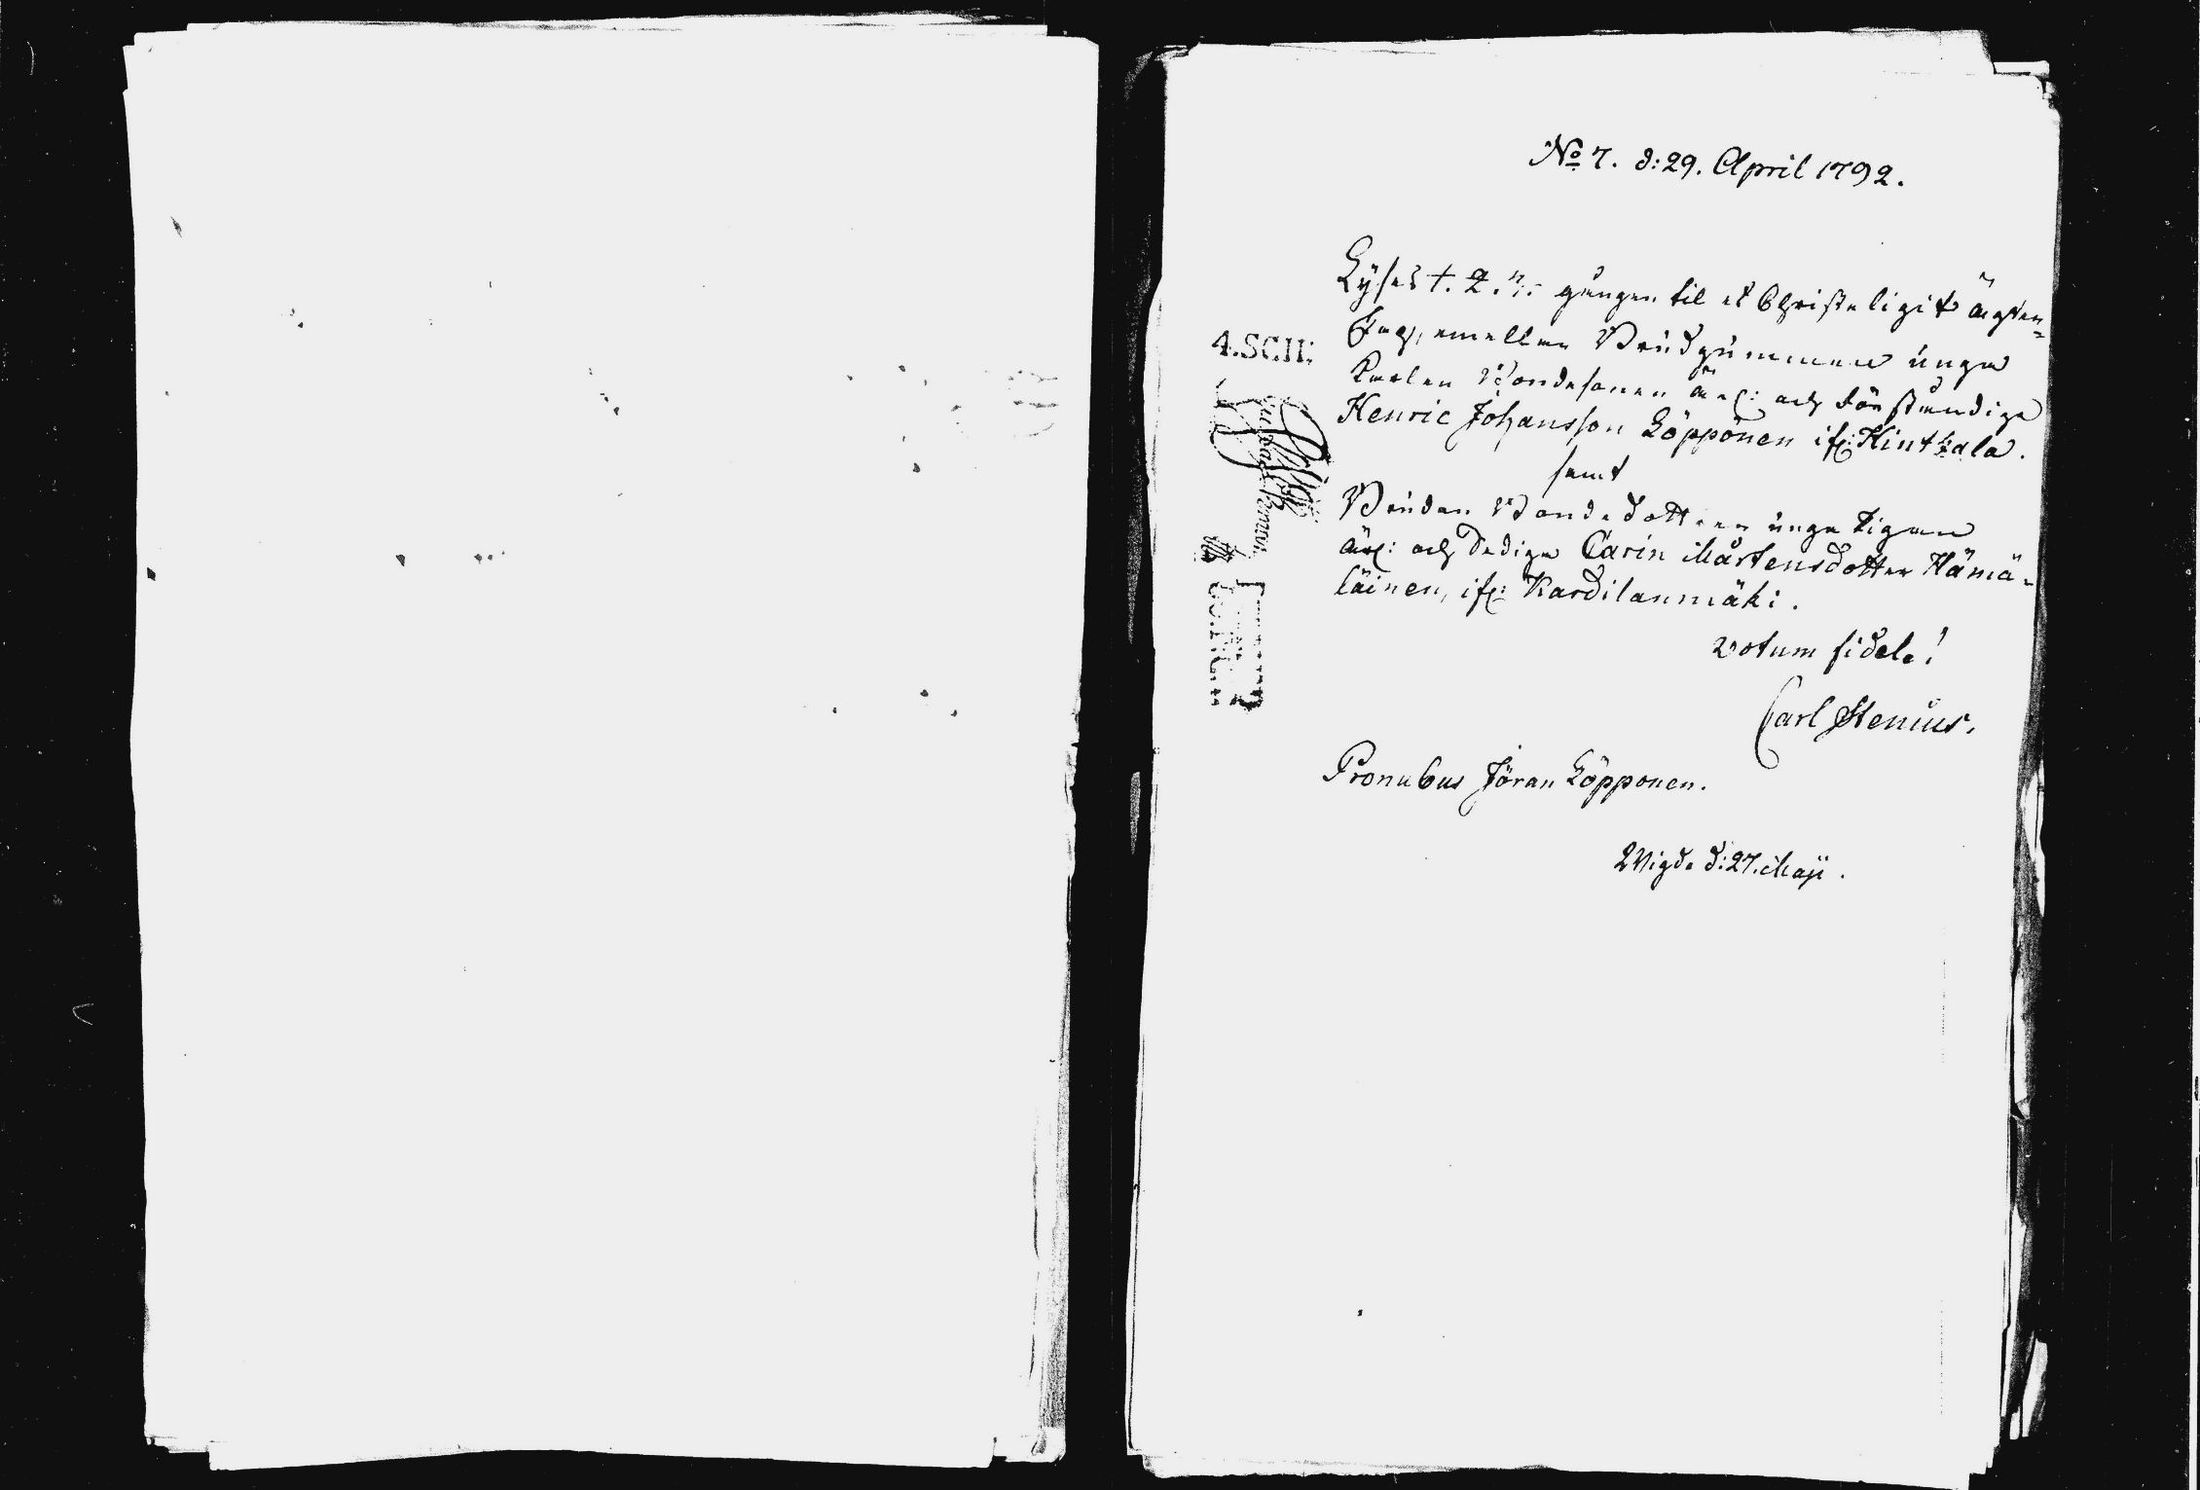 No 7. d: 29. April 1792.
Lyses 1. 2. gången til et Christeligit ägten=
skap, emellan Brudgummen unga
Karlen Bondesonen ärl: och förståndige
Henric Johansson Löppönen ifr: Kintzala.
samt
Bruden Bondedottren unga Pigan
ärl: och dediga Carin Mårtensdotter Hämä-
läinen, ifr: Kardilanmäki.
votum fidele!
Carl Stenius.
Pronubus Jöran Löpponen.
Wigde d: 27. Maji.
4.SCH: